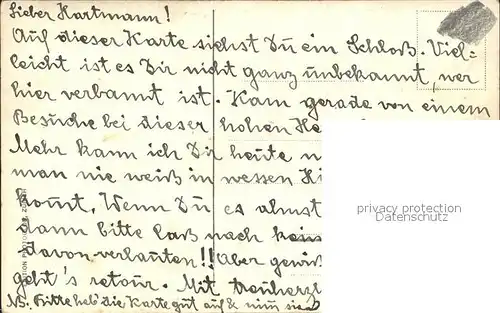 Lieber Hartmann!
Auf dieser Karte siehst Du ein Schloß. Viel=
leicht ist es Dir nicht ganz unbekannt, wer
hier verbannt ist. Kam gerade von einem
Besuche bei dieser hohen
Mehr kann ich Dir heute
man nie weiß in wessen
kommt. Wenn Du es ahnst
dann bitte laß nach
davon verlauten!! Aber
geht's retour. Mit
NB. Bitte heb' die Karte gut auf &
privacy protection
Datenschutz